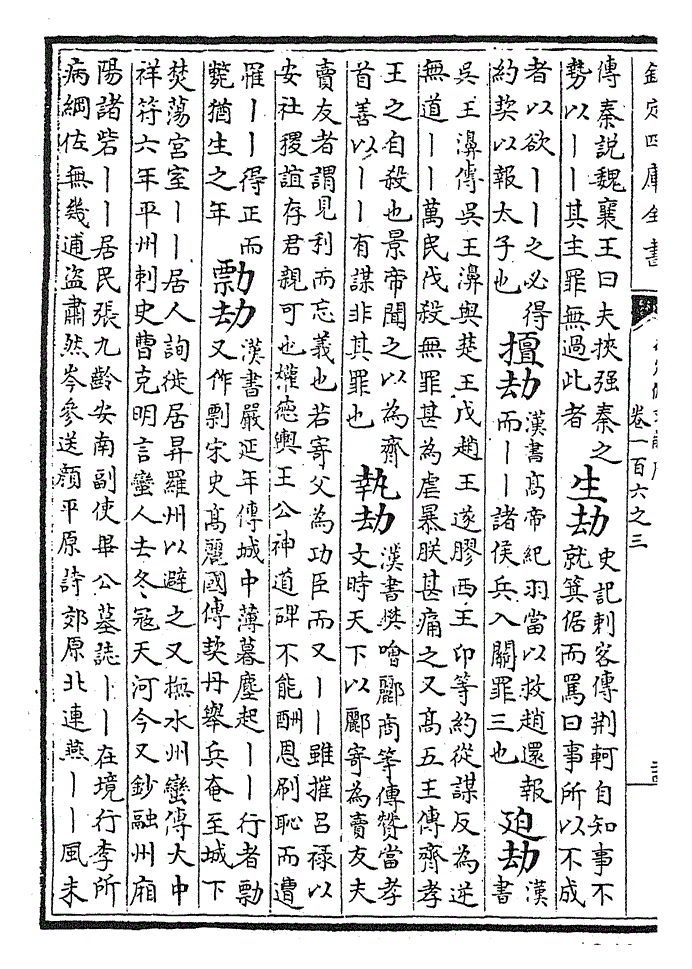 欽定四庫全書
卷一百六之三
傳秦說魏襄王曰夫挾强秦之
勢以丨丨其主罪無過此者
生劫
史記刺客傳荆軻自知事不
就箕倨而罵曰事所以不成
者以欲丨丨之必得
約契以報太子也
擅劫
漢書髙帝紀羽當以救趙還報
而丨丨諸侯兵入關罪三也
迫劫
漢
書
吳王濞傳吳王濞與楚王戊趙王遂膠西王卬等約從謀反為逆
無道丨丨萬民伐殺無罪甚為虐暴朕甚痛之又髙五王傳齊孝
王之自殺也景帝聞之以為齊
首善以丨丨有謀非其罪也
執劫
漢書樊噲酈商等傳贊當孝
文時天下以酈寄為賣友夫
賣友者謂見利而忘義也若寄父為功臣而又丨丨雖摧吕禄以
安社稷誼存君親可也權德輿王公神道碑不能酬恩刷恥而遭
罹丨丨得正而
斃猶生之年
勡劫
漢書嚴延年傳城中薄暮塵起丨丨行者勡
又作剽宋史髙麗國傳契丹舉兵奄至城下
焚蕩宫室丨丨居人詢徙居昇羅州以避之又撫水州蠻傳大中
祥符六年平州刺史曹克明言蠻人去冬冦天河今又鈔融州廂
陽諸砦丨丨居民張九齡安南副使畢公墓誌丨丨在境行李所
病綱佐無幾逋盗肅然岑參送顔平原詩郊原北連燕丨丨風未